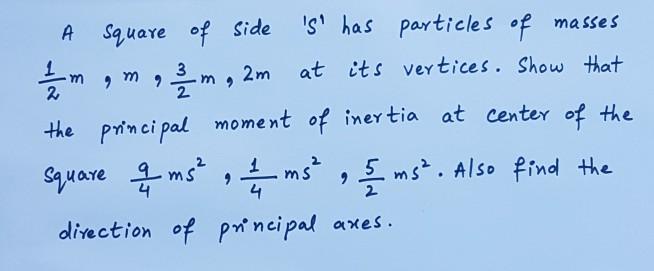 A Square of Side 'S' has particles of masses
1/2 m , m , 3/2 m , 2m at its vertices. Show that
the principal moment of inertia at center of the
Square 9/4 ms² , 1/4 ms² , 5/2 ms² . Also find the
direction of principal axes.